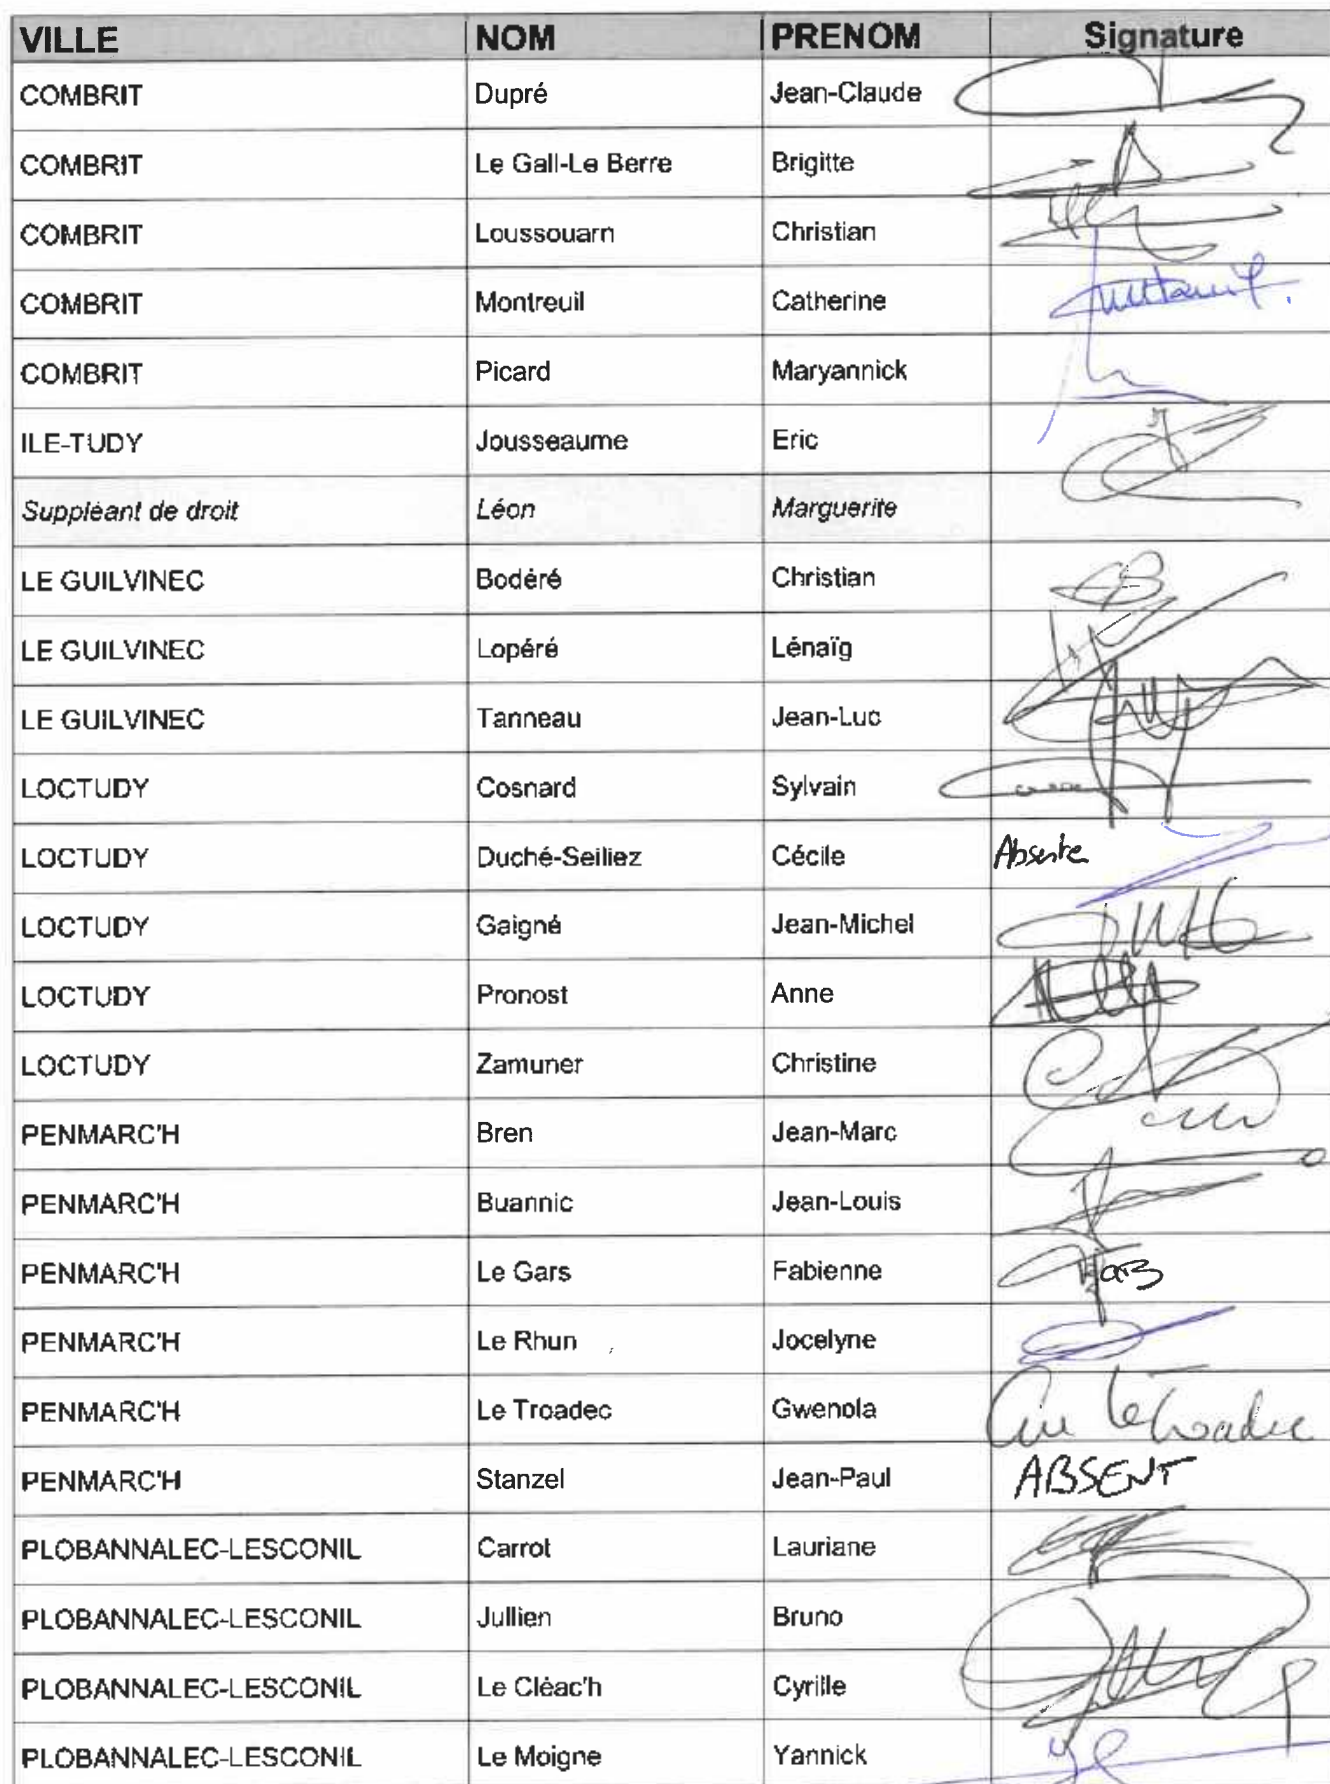 VILLE NOM PRENOM Signature
COMBRIT Dupré Jean-Claude
COMBRIT Le Gall-Le Berre Brigitte
COMBRIT Loussouarn Christian
COMBRIT Montreuil Catherine
COMBRIT Picard Maryannick
ILE-TUDY Jousseaume Eric
Suppléant de droit Léon Marguerite
LE GUILVINEC Bodéré Christian
LE GUILVINEC Lopéré Lénaïg
LE GUILVINEC Tanneau Jean-Luc
LOCTUDY Cosnard Sylvain
LOCTUDY Duché-Seiliez Cécile Absente
LOCTUDY Gaigné Jean-Michel
LOCTUDY Pronost Anne
LOCTUDY Zamuner Christine
PENMARC'H Bren Jean-Marc
PENMARC'H Buannic Jean-Louis
PENMARC'H Le Gars Fabienne
PENMARC'H Le Rhun Jocelyne
PENMARC'H Le Troadec Gwenola Le Troadec
PENMARC'H Stanzel Jean-Paul ABSENT
PLOBANNALEC-LESCONIL Carrot Lauriane
PLOBANNALEC-LESCONIL Jullien Bruno
PLOBANNALEC-LESCONIL Le Cléac'h Cyrille
PLOBANNALEC-LESCONIL Le Moigne Yannick